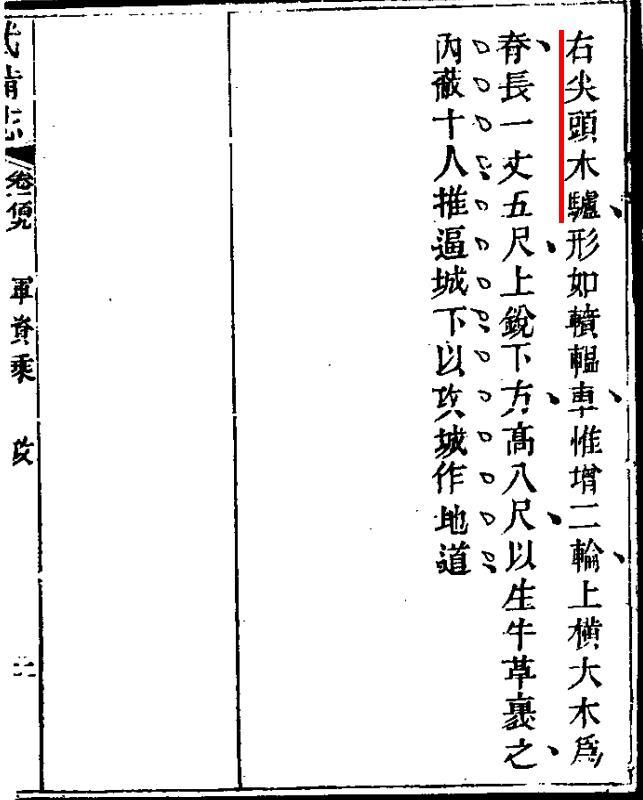 右尖頭木驢形如轒轀車惟增二輪上橫大木爲
脊長一丈五尺上銳下方高八尺以生牛革裹之
內蔽十人推逼城下以攻城作地道
武備志 軍資乘 攻